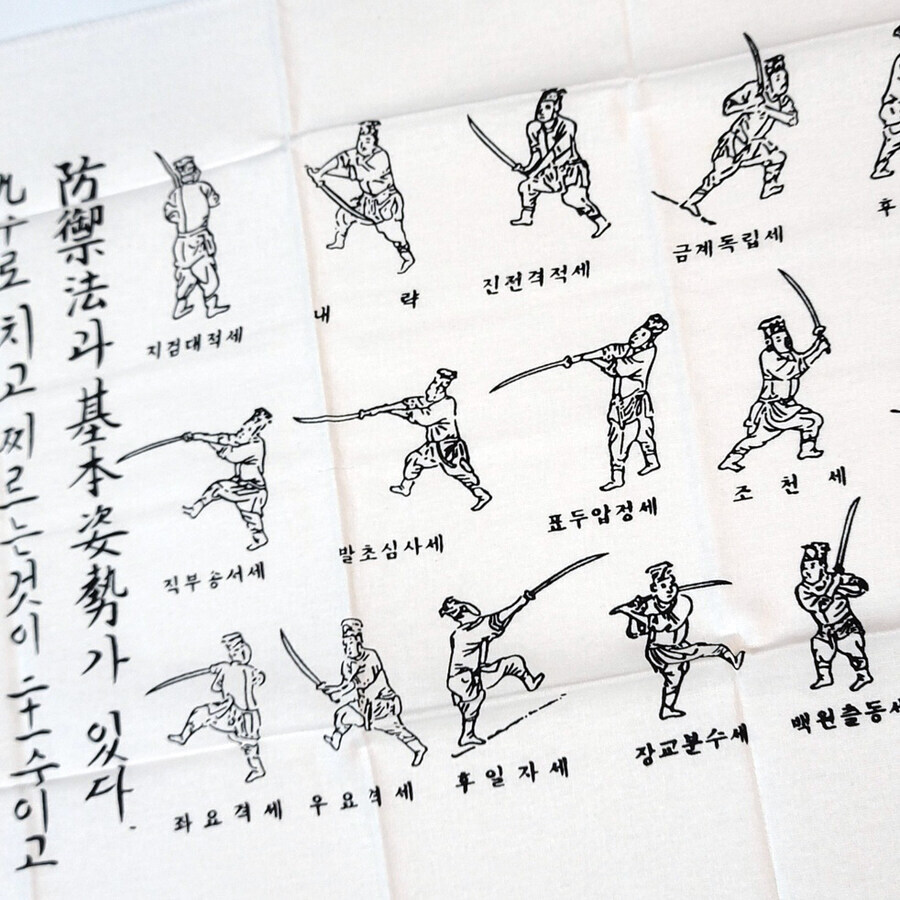 防御法과 基本姿勢가 있다.
치고 찌르는것이 二十一수이고
지검대적세
내략
진전격적세
금계독립세
후
직부송서세
발초심사세
표두압정세
조천세
좌요격세
우요격세
후일자세
장교분수세
백원출동세